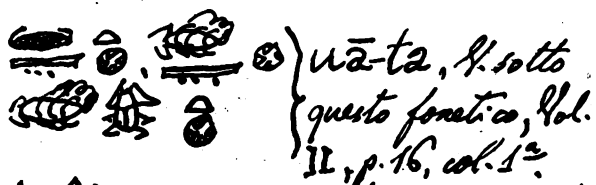 uā-ta, V. sotto
questo fonetico, Vol.
II, p. 16, col. 1ª.